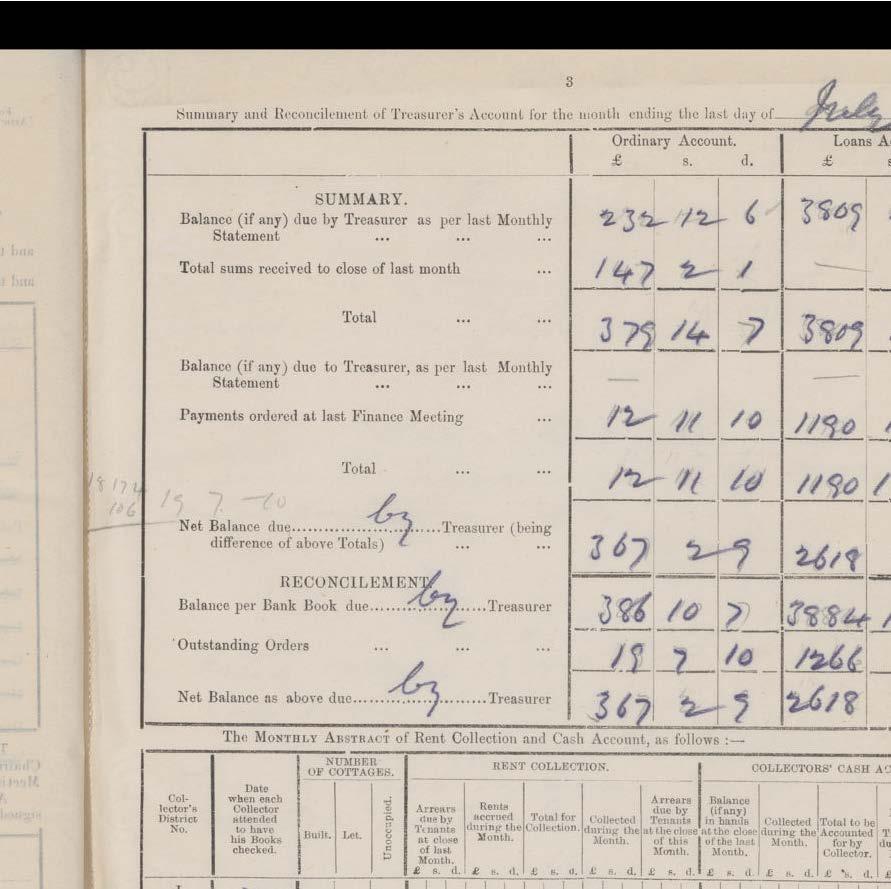 3
Summary and Reconcilement of Treasurer's Account for the month ending the last day of July
Ordinary Account. Loans A
£ s. d. £ s
SUMMARY.
Balance (if any) due by Treasurer as per last Monthly
Statement ... ... ... 232 12 6 3809
Total sums received to close of last month ... 147 2 1 —
Total ... ... 379 14 7 3809
Balance (if any) due to Treasurer, as per last Monthly
Statement ... ... ... — —
Payments ordered at last Finance Meeting ... 12 11 10 1190
Total ... ... 12 11 10 1190 1
18 174 19 7 -10
106
Net Balance due by Treasurer (being
difference of above Totals) ... ... 367 2 9 2618
RECONCILEMENT
Balance per Bank Book due by Treasurer 386 10 7 3884 1
Outstanding Orders ... ... ... 19 7 10 1266
Net Balance as above due by Treasurer 367 2 9 2618
The MONTHLY ABSTRACT of Rent Collection and Cash Account, as follows :—
Col-
lector's
District
No.
Date
when each
Collector
attended
to have
his Books
checked.
NUMBER
OF COTTAGES.
Built. Let. Unoccupied.
RENT COLLECTION.
Arrears
due by
Tenants
at close
of last
Month.
£ s. d.
Rents
accrued
during the
Month.
£ s. d.
Total for
Collection.
£ s. d.
Collected
during the
Month.
£ s. d.
Arrears
due by
Tenants
at the close
of this
Month.
£ s. d.
COLLECTORS' CASH AC
Balance
(if any)
in hands
at the close
of the last
Month.
£ s. d.
Collected
during the
Month.
£ s. d.
Total to be
Accounted
for by
Collector.
£ s. d.